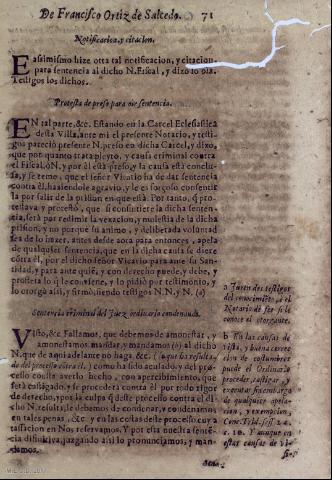 De Francisco Ortiz de Salcedo. 71
Notificacion, y citacion.
E assimismo hize otra tal notificacion, y citacion
para sentencia al dicho N. Fiscal, y dixo lo oìa.
Testigos los dichos.
Protesta de preso para oir sentencia.
EN tal parte, &c. Estando en la Carcel Eclesiastica
desta Villa, ante mi el presente Notario, y testi-
gos pareciò presente N. preso en dicha Carcel, y dixo,
que por quanto trata pleyto, y causa criminal contra
el Fiscal, ò N. y por èl està preso, y la causa està conclu-
sa, y se teme, que el señor Vicario ha de dar sentencia
contra èl, haziendole agravio, y le es forçoso consentirla
por salir de la prision en que està. Por tanto, que pro-
testava y protestò, que si consintiere la dicha senten-
cia, serà por redimir la vexacion, y molestia de la dicha
prision, y no porque su animo, y deliberada voluntad
sea de lo hazer, antes desde aora para entonces, apela
de qualquier sentencia, que en la dicha causa se diere
contra èl, por el dicho señor Vicario para ante su San-
tidad, y para ante quiẽ, y con derecho puede, y debe, y
protesta lo q̃ le conviene, y lo pidiò por testimonio, y
lo otorgò assi, y firmò, siendo testigos N. N. y N. (a)
Sentencia criminal del Juez ordinario condenando.
VIsto, &c. Fallamos, que debemos de amonestar, y
amonestamos, mandar, y mandamos (b) al dicho
N. que de aqui adelante no haga, &c. (lo que ha resulta-
do del processo contra èl,) como ha sido acusado, y del pro-
cesso consta averlo hecho, con apercebimiento, que
serà castigado, y se procederà contra èl por todo rigor
de derecho, y por la culpa q̃ deste processo contra el di-
cho N. resulta, le debemos de condenar, y condenamos
en tales penas, &c. y en las costas deste processo cuya
tassacion en Nos reservamos. Y por esta nuestra sen-
cia difinitiva, juzgando assi lo pronunciamos, y man-
damos.
a Juren dos testigos
del conocimiẽto, si el
Notario de fee si le
conoce el otorgante.
b En las causas de
visita, y
de costumbres
puede el Ordinario
proceder, castigar, y
executar sin embargo
de qualquier apela-
cion, y exempcion,
Conc. Trid. sess. 24.
c. 10. Y aunque en
estas causas de vi-